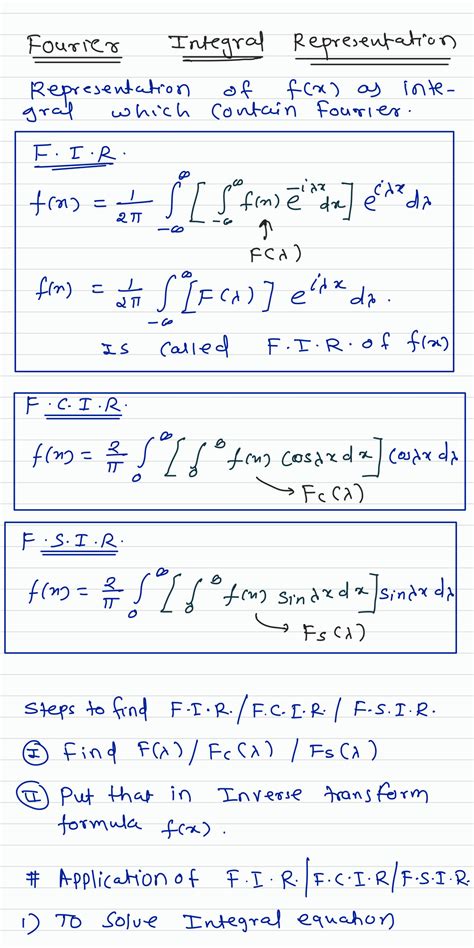 Fourier Integral Representation
Representation of f(x) as inte-
gral which contain Fourier.
F.I.R.
f(x) = 1/2π ∫_{-∞}^{∞} [ ∫_{-∞}^{∞} f(x) e^{-iλx} dx ] e^{iλx} dλ
↑
F(λ)
f(x) = 1/2π ∫_{-∞}^{∞} [F(λ)] e^{iλx} dλ.
Is called F.I.R. of f(x)
F.C.I.R.
f(x) = 2/π ∫_0^∞ [ ∫_0^∞ f(x) cosλx dx ] cosλx dλ
→ Fc(λ)
F.S.I.R.
f(x) = 2/π ∫_0^∞ [ ∫_0^∞ f(x) sinλx dx ] sinλx dλ
→ Fs(λ)
Steps to find F.I.R./F.C.I.R./F.S.I.R.
Ⓘ Find F(λ) / Fc(λ) / Fs(λ)
Ⓘⓘ Put that in Inverse transform
formula f(x).
# Application of F.I.R./F.C.I.R/F.S.I.R.
1) To Solve Integral equation